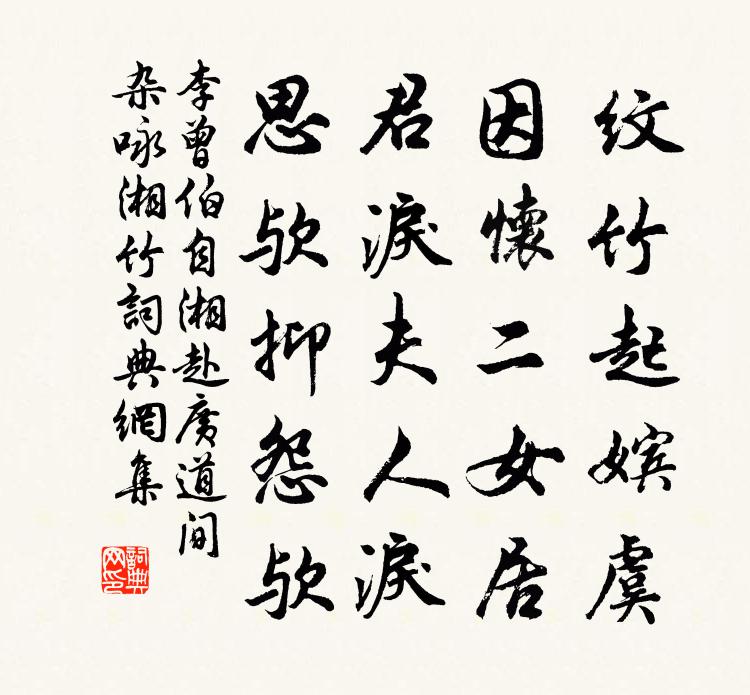 纹竹起嫔虞
因懷二女居
君淚夫人淚
思欤抑怨欤
李曾伯自湘赴廣道间
杂咏湘竹詞典網集
詞典
网印